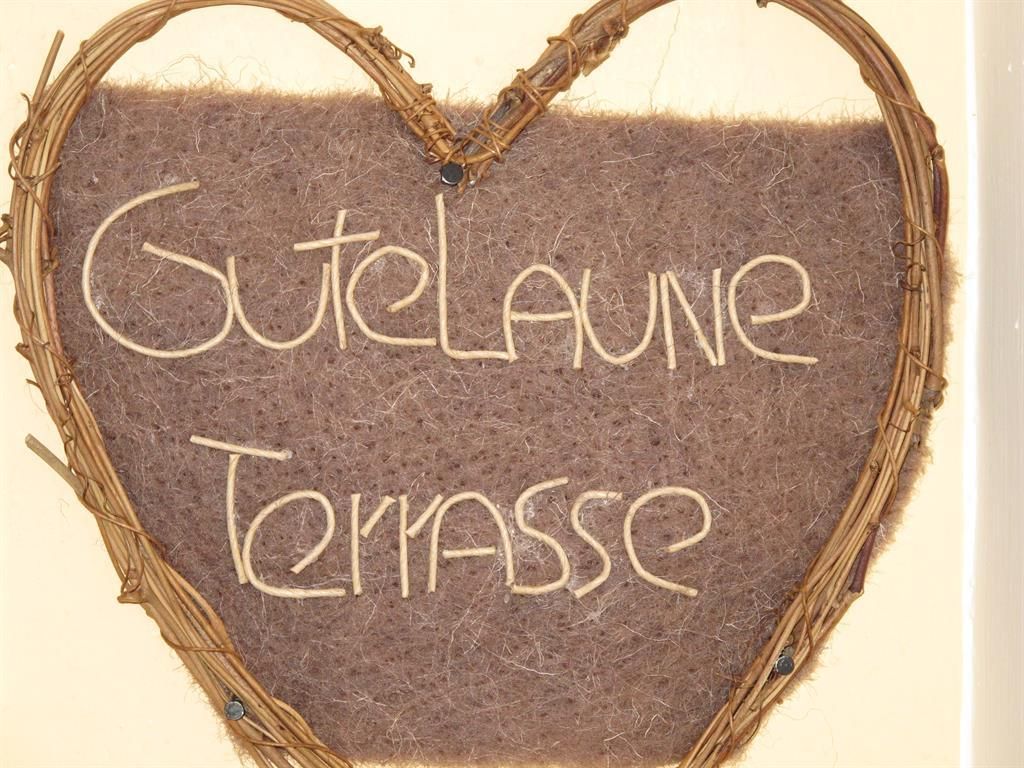 GuteLaune
Terrasse